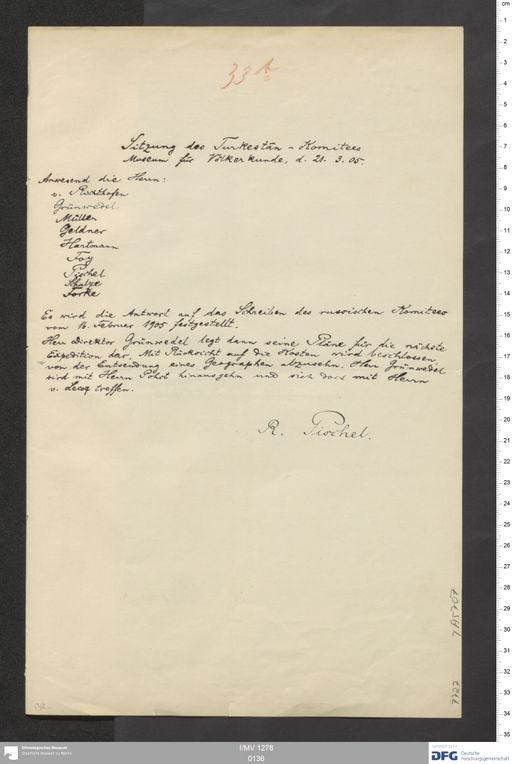 33 A
Sitzung des Turkestān-Komitees
Museum für Völkerkunde, d. 21. 3. 05.
Anwesend die Herrn:
v. Richthofen
Grünwedel
Müller
Geldner
Hartmann
Foy
Pischel
Schulze
Forke
Es wird die Antwort auf das Schreiben des russischen Komitees
vom 16. Februar 1905 festgestellt.
Herr Direktor Grünwedel legt dann seine Pläne für die nächste
Expedition dar. Mit Rücksicht auf die Kosten wird beschlossen,
von der Entsendung eines Geographen abzusehn. Herr Grünwedel
wird mit Herrn Pohrt hinausgehn und sich dort mit Herrn
v. Lecoq treffen.
R. Pischel.
7 A 5707
7727
Ethnologisches Museum
Staatliche Museen zu Berlin
I/MV 1278
0136
DFG Deutsche
Forschungsgemeinschaft
cm
1
2
3
4
5
6
7
8
9
10
11
12
13
14
15
16
17
18
19
20
21
22
23
24
25
26
27
28
29
30
31
32
33
34
35